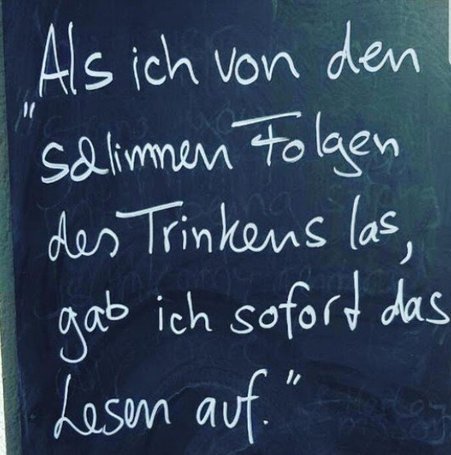 „Als ich von den
schlimmen Folgen
des Trinkens las,
gab ich sofort das
Lesen auf."